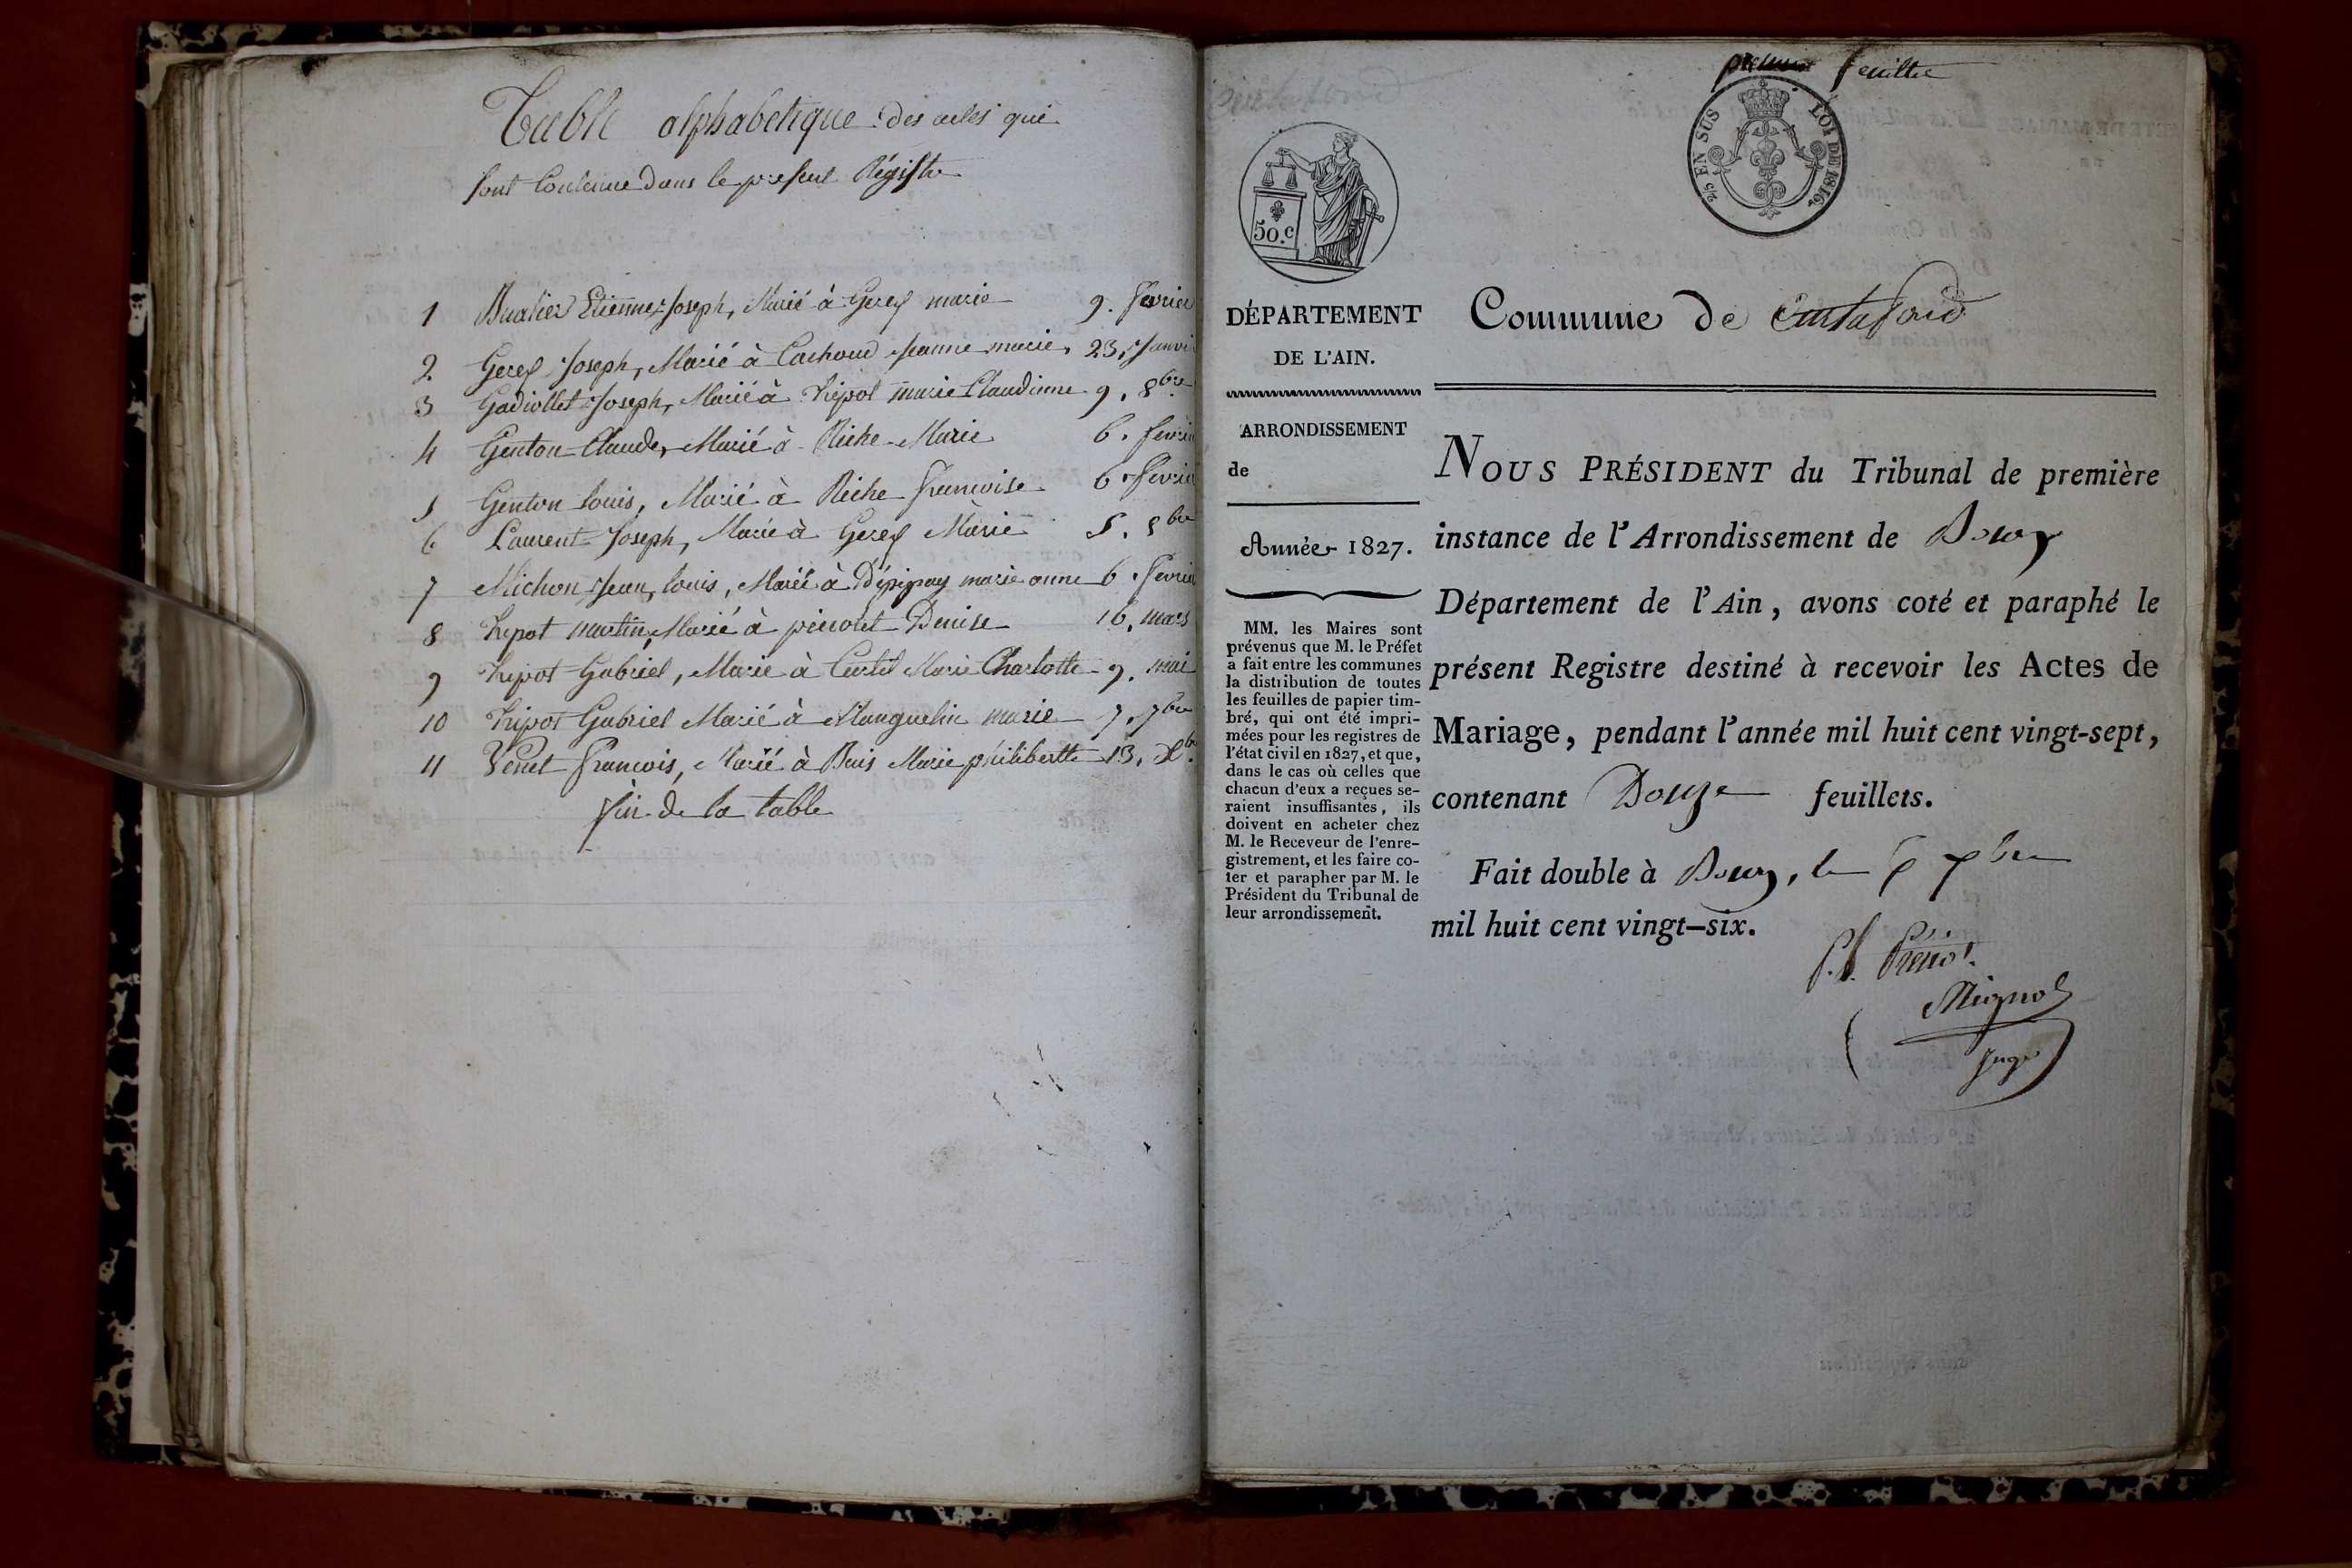 Table alphabetique des actes qui
sont Contenue dans le present Régistre
1 Buatier Etienne Joseph, Marié à Gerey marie 9. fevrier
2 Gerey Joseph, Marié à Cachoud Jeanne marie, 23, Janvi
3 Gadiollet Joseph, Marié à Tripot marie Claudinne 9, 8bre
4 Genton Claude, Marié à Riche Marie 6. fevrie
5 Genton louis, Marié à Riche francoise 6 fevrie
6 Laurent Joseph, Marié à Gerey Marie 5. 8bre
7 Michon Jean, louis, Marié à Dépipay marie anne 6. fevrie
8 Tripot martin, Marié à penotet Denise 16, mars
9 Tripot Gabriel, Marié à Curtil Marie Charlotte 9, mai
10 Tripot Gabriel Marié à Manguelin marie 7, 7bre
11 Venet francois, Marié à Buis Marie philibertte 13, Xb.
fin de la table
premier feuillet
2/5 EN SUS LOI DE 1816.
50.c
DÉPARTEMENT
DE L'AIN.
ARRONDISSEMENT
de
Année 1827.
MM. les Maires sont
prévenus que M. le Préfet
a fait entre les communes
la distribution de toutes
les feuilles de papier tim-
bré, qui ont été impri-
mées pour les registres de
l'état civil en 1827, et que,
dans le cas où celles que
chacun d'eux a reçues se-
raient insuffisantes, ils
doivent en acheter chez
M. le Receveur de l'enre-
gistrement, et les faire co-
ter et parapher par M. le
Président du Tribunal de
leur arrondissement.
Commune de Curtafond
NOUS PRÉSIDENT du Tribunal de première
instance de l'Arrondissement de Bourg
Département de l'Ain, avons coté et paraphé le
présent Registre destiné à recevoir les Actes de
Mariage, pendant l'année mil huit cent vingt-sept,
contenant Douze feuillets.
Fait double à Bourg, le 6 7bre
mil huit cent vingt-six.
Mignot
Juge